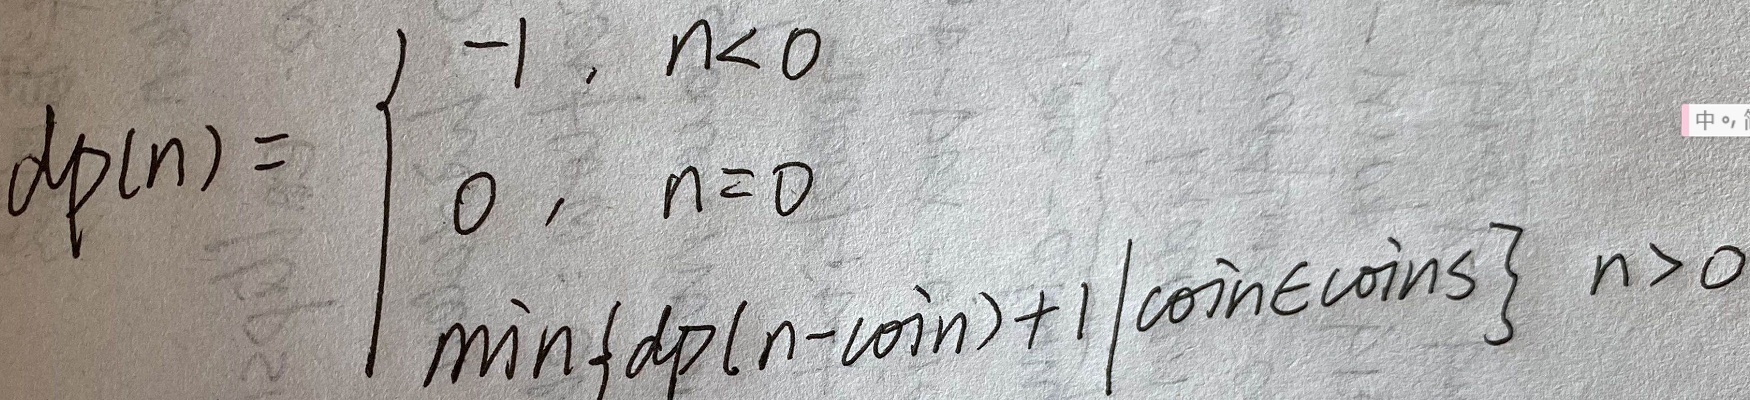 dp(n) = { -1 , n<0
0 , n=0
min{dp(n-coin)+1|coin∈coins} n>0
中 °, 简